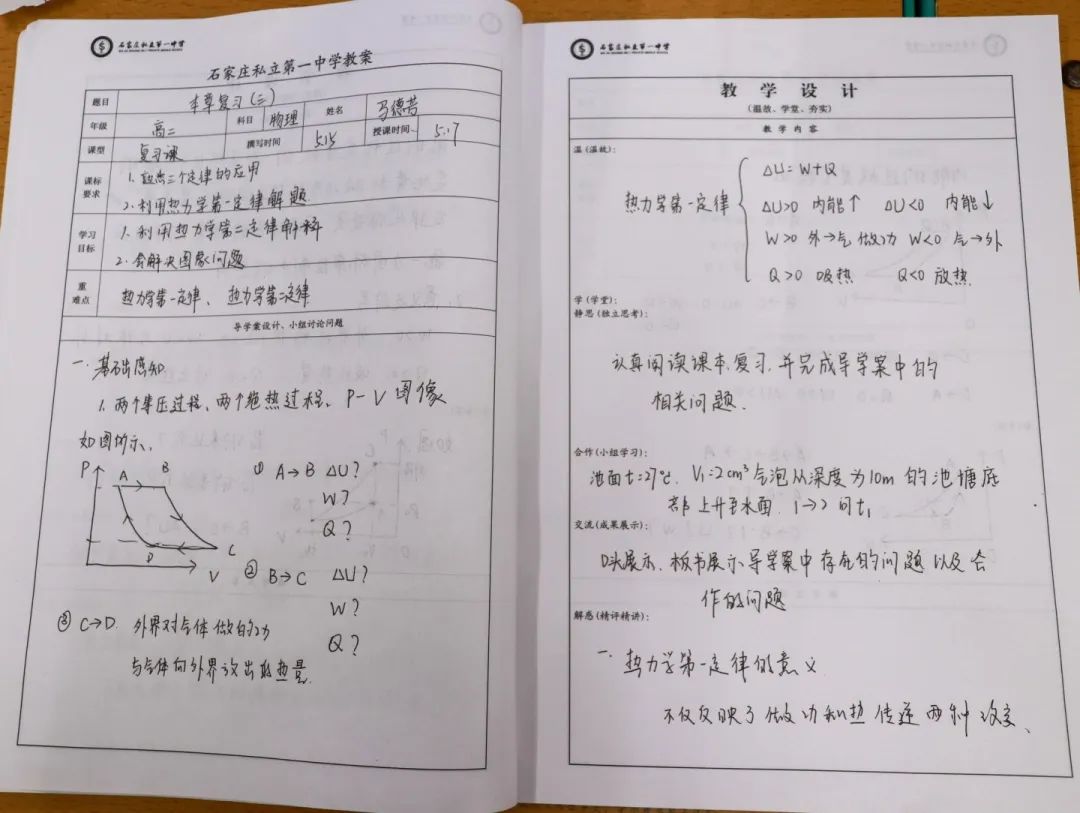 石家庄私立第一中学
石家庄私立第一中学教案
题目 本章复习(三)
年级 高二 科目 物理 姓名 马德芳
课型 复习课 撰写时间 5.15 授课时间 5.17
课标要求
1. 三个定律的应用
2. 利用热力学第一定律解题
学习目标
1. 利用热力学第二定律解释
2. 会解决图象问题
重难点
热力学第一定律、热力学第二定律
导学案设计、小组讨论问题
一. 基础感知
1. 两个等压过程、两个绝热过程、P-V图像
如图所示、
P A B C D V
① A→B ΔU?
W?
Q?
② B→C ΔU?
W?
Q?
③ C→D 外界对气体做的功
与气体向外界放出的热量
石家庄私立第一中学
教 学 设 计
(温故、学堂、夯实)
教 学 内 容
温(温故):
热力学第一定律
ΔU=W+Q
ΔU>0 内能↑ ΔU<0 内能↓
W>0 外→气 做功 W<0 气→外
Q>0 吸热 Q<0 放热
学(学堂):
静思(独立思考):
认真阅读课本、复习、并完成导学案中的
相关问题.
合作(小组学习):
池面t=27℃. V₁=2cm³气泡从深度为10m的池塘底
部上升至水面. 1→2 问t₁
交流(成果展示):
口头展示、板书展示导学案中存在的问题以及合
作的问题
解惑(精评精讲):
一. 热力学第一定律的意义
不仅反映了做功和热传递两种改变、